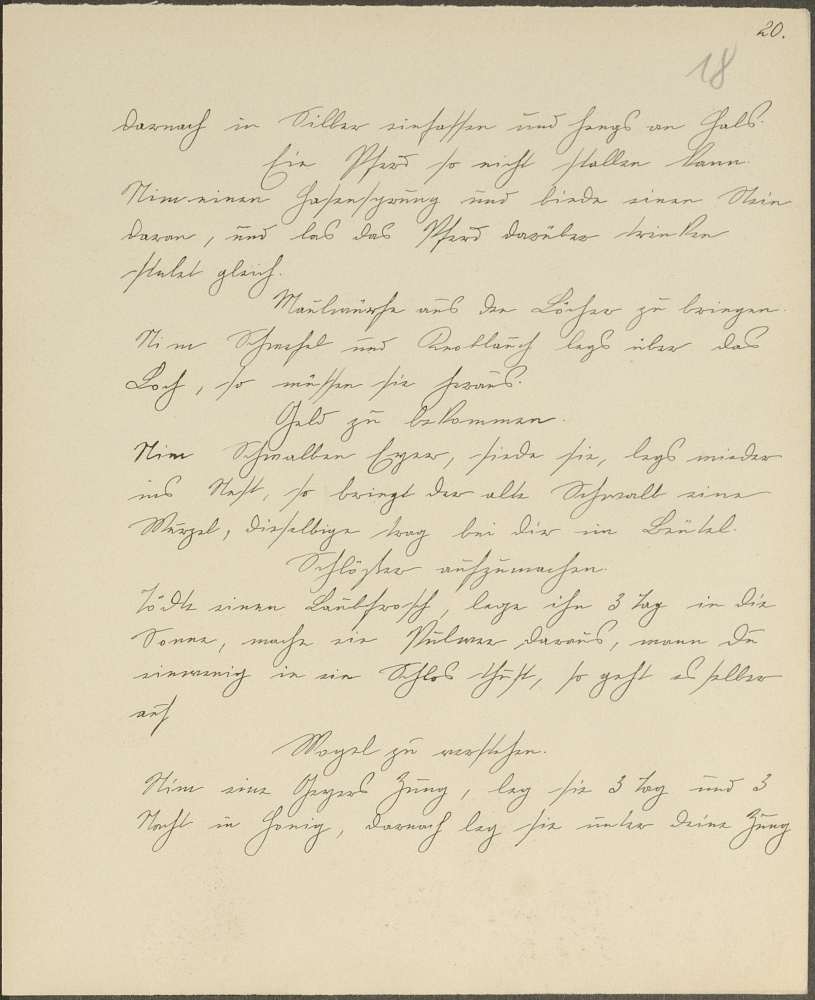 20.
18
darnach in Silber einfassen und hengs an Hals.
Ein Pferd so nicht stallen kann.
Nim einen Hasensprung und binde einen Stein
daran, und las das Pferd darüber trinken
stalet gleich.
Maulwürfe aus den Löcher zu bringen.
Nim Schwefel und Knoblauch legs über das
Loch, so müssen sie heraus.
Geld zu bekommen.
Nim Schwalben Eyer, siede sie, legs wieder
ins Nest, so bringt der alte Schwalb eine
Wurzel, dieselbige trag bei dir im Beutel.
Schlößer aufzumachen.
Tödte einen Laubfrosch, lege ihn 3 Tag in die
Sonne, mache ein Pulwer daraus, wann du
einwenig in ein Schlos thust, so geht es selber
auf
Vogel zu verstehen.
Nim eine Geyers Zung, leg sie 3 Tag und 3
Nacht in Honig, darnach leg sie unter deine Zung